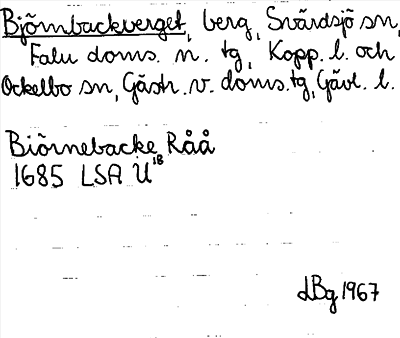 Björnbackverget, berg, Svärdsjö sn,
Falu doms. n. tg, Kopp. l. och
Ockelbo sn, Gästr. v. doms. tg, Gävl. l.
Biörnebacke Råå
1685 LSA U 1B
dBg 1967